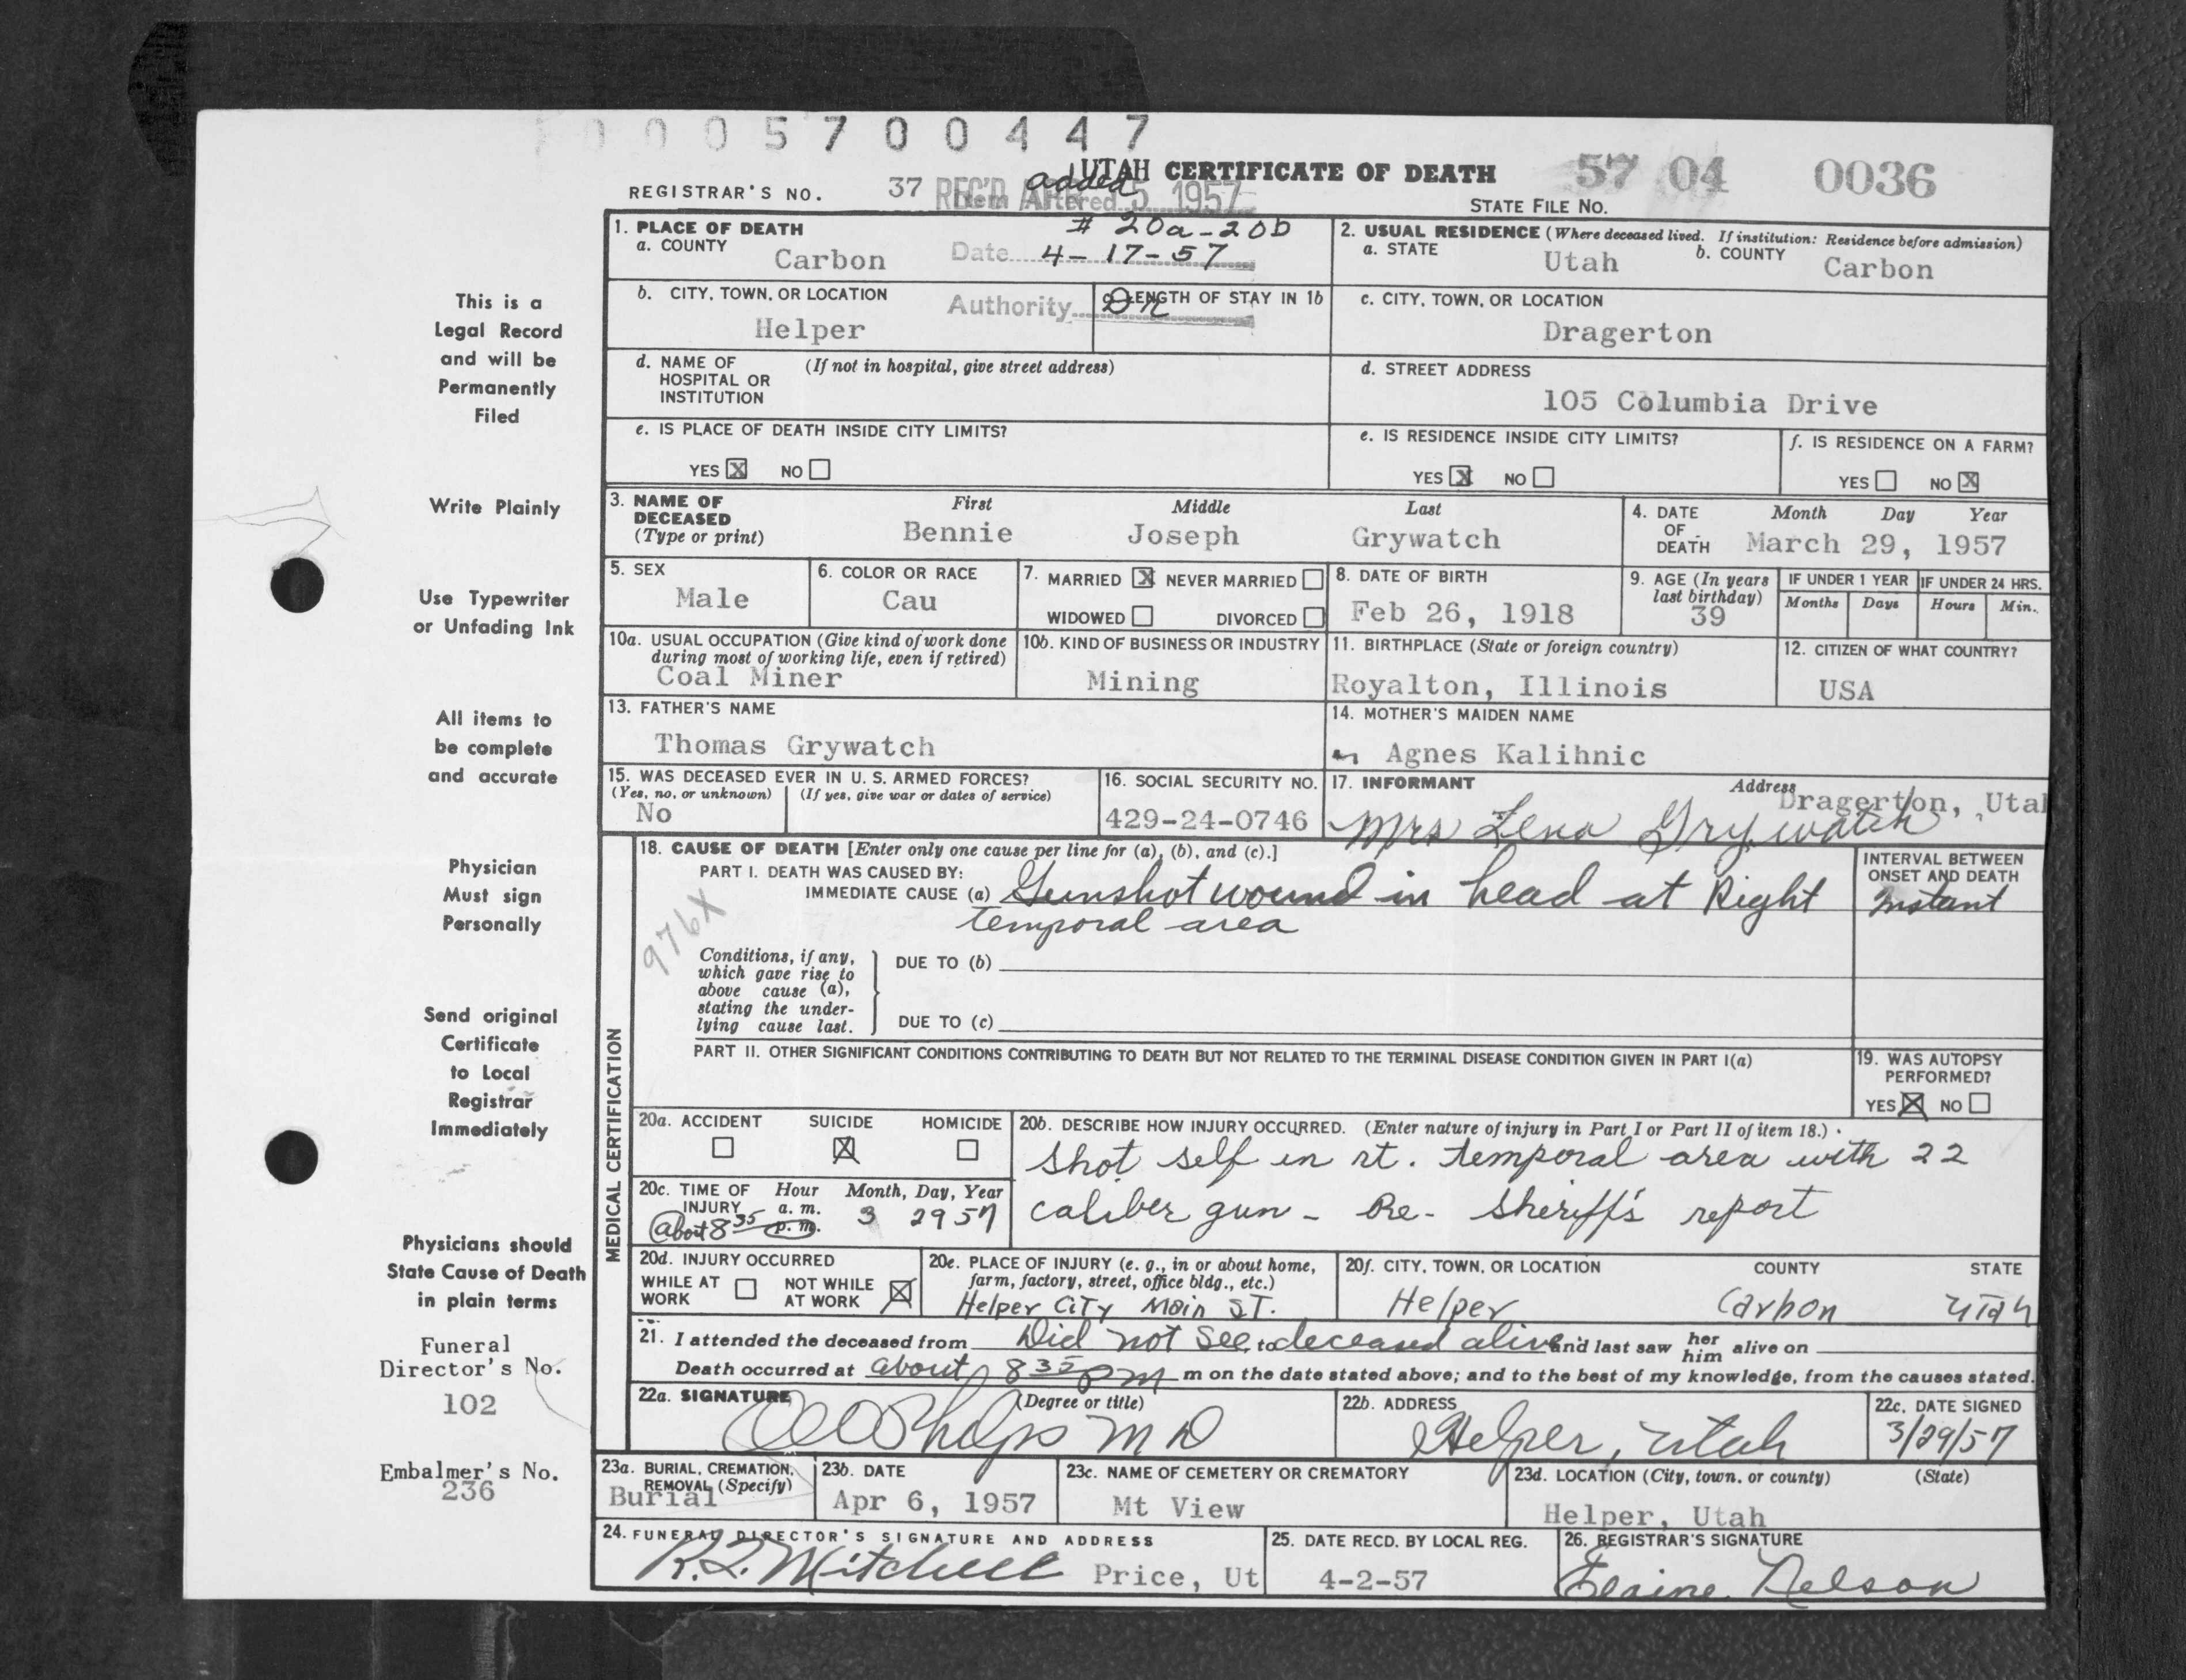 0005700447
UTAH CERTIFICATE OF DEATH 57 04 0036
REGISTRAR'S NO. 37 REC'D APR 5 1957 STATE FILE NO.
Item Altered added
# 20a-20b
Date 4-17-57
Authority Dr
1. PLACE OF DEATH
a. COUNTY
Carbon
2. USUAL RESIDENCE (Where deceased lived. If institution: Residence before admission)
a. STATE Utah b. COUNTY Carbon
b. CITY, TOWN, OR LOCATION
Helper
c. LENGTH OF STAY IN 1b
c. CITY, TOWN, OR LOCATION
Dragerton
d. NAME OF HOSPITAL OR INSTITUTION (If not in hospital, give street address)
d. STREET ADDRESS
105 Columbia Drive
e. IS PLACE OF DEATH INSIDE CITY LIMITS?
YES X NO
e. IS RESIDENCE INSIDE CITY LIMITS?
YES X NO
f. IS RESIDENCE ON A FARM?
YES NO X
3. NAME OF DECEASED (Type or print)
First Middle Last
Bennie Joseph Grywatch
4. DATE OF DEATH Month Day Year
March 29, 1957
5. SEX
Male
6. COLOR OR RACE
Cau
7. MARRIED X NEVER MARRIED
WIDOWED DIVORCED
8. DATE OF BIRTH
Feb 26, 1918
9. AGE (In years last birthday)
39
IF UNDER 1 YEAR IF UNDER 24 HRS.
Months Days Hours Min.
10a. USUAL OCCUPATION (Give kind of work done during most of working life, even if retired)
Coal Miner
10b. KIND OF BUSINESS OR INDUSTRY
Mining
11. BIRTHPLACE (State or foreign country)
Royalton, Illinois
12. CITIZEN OF WHAT COUNTRY?
USA
13. FATHER'S NAME
Thomas Grywatch
14. MOTHER'S MAIDEN NAME
Agnes Kalihnic
15. WAS DECEASED EVER IN U. S. ARMED FORCES?
(Yes, no, or unknown) (If yes, give war or dates of service)
No
16. SOCIAL SECURITY NO.
429-24-0746
17. INFORMANT Address
Dragerton, Utah
Mrs Lena Grywatch
18. CAUSE OF DEATH [Enter only one cause per line for (a), (b), and (c).]
PART I. DEATH WAS CAUSED BY:
IMMEDIATE CAUSE (a) Gunshot wound in head at Right
temporal area
INTERVAL BETWEEN ONSET AND DEATH
Instant
976X
Conditions, if any, which gave rise to above cause (a), stating the underlying cause last.
DUE TO (b)
DUE TO (c)
PART II. OTHER SIGNIFICANT CONDITIONS CONTRIBUTING TO DEATH BUT NOT RELATED TO THE TERMINAL DISEASE CONDITION GIVEN IN PART I(a)
19. WAS AUTOPSY PERFORMED?
YES X NO
MEDICAL CERTIFICATION
20a. ACCIDENT SUICIDE HOMICIDE
X
20b. DESCRIBE HOW INJURY OCCURRED. (Enter nature of injury in Part I or Part II of item 18.)
Shot self in rt. temporal area with 22
caliber gun - Re- Sheriff's report
20c. TIME OF INJURY Hour a. m. p. m. Month, Day, Year
About 8 35 3 29 57
20d. INJURY OCCURRED
WHILE AT WORK NOT WHILE AT WORK X
20e. PLACE OF INJURY (e. g., in or about home, farm, factory, street, office bldg., etc.)
Helper City Main ST.
20f. CITY, TOWN, OR LOCATION COUNTY STATE
Helper Carbon Utah
21. I attended the deceased from Did not see to deceased alive and last saw her him alive on
Death occurred at about 8 35 PM m on the date stated above; and to the best of my knowledge, from the causes stated.
22a. SIGNATURE (Degree or title)
Phelps MD
22b. ADDRESS
Helper, Utah
22c. DATE SIGNED
3/29/57
23a. BURIAL, CREMATION, REMOVAL (Specify)
Burial
23b. DATE
Apr 6, 1957
23c. NAME OF CEMETERY OR CREMATORY
Mt View
23d. LOCATION (City, town, or county) (State)
Helper, Utah
24. FUNERAL DIRECTOR'S SIGNATURE AND ADDRESS
R.L. Mitchell Price, Ut
25. DATE RECD. BY LOCAL REG.
4-2-57
26. REGISTRAR'S SIGNATURE
Elaine Nelson
This is a
Legal Record
and will be
Permanently
Filed
Write Plainly
Use Typewriter
or Unfading Ink
All items to
be complete
and accurate
Physician
Must sign
Personally
Send original
Certificate
to Local
Registrar
Immediately
Physicians should
State Cause of Death
in plain terms
Funeral
Director's No.
102
Embalmer's No.
236